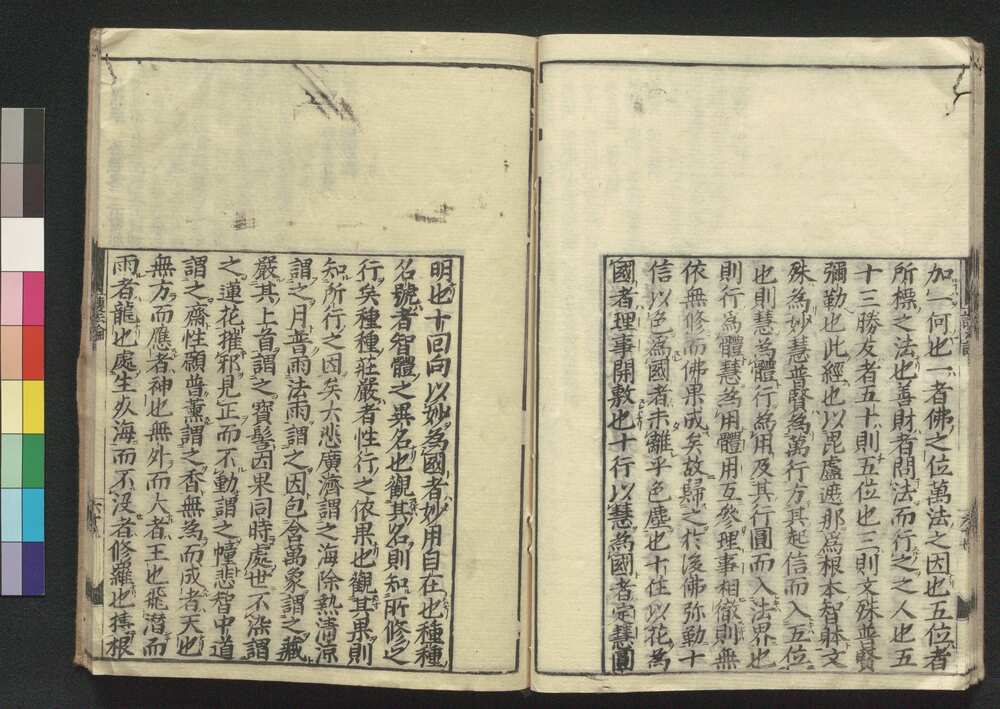 加一何也一者佛之位萬法之因也五位者
所標之法也善財者問法而行之之人也五
十三勝友者五十則五位也三則文殊普賢
彌勒也此經也以毘盧遮那爲根本智躰文
殊為妙慧普賢為萬行方其起信而入五位
也則慧為體行為用及其行圓而入法界也
則行為體慧為用體用互參理事相徹則無
依無修而佛果成矣故歸之於後佛弥勒十
信以色為國者未離乎色塵也十住以花為
國者理事開敷也十行以慧為國者定慧圓
明也十回向以妙為國者妙用自在也種種
名號者智體之異名也觀其名則知所修之
行矣種種莊嚴者性行之依果也觀其果則
知所行之因矣大悲廣濟謂之海除熱清涼
謂之月普雨法雨謂之因包含萬象謂之藏
嚴其上首謂之寳髻因果同時處世不染謂
之蓮花摧邪見正而不動謂之幢悲智中道
謂之齋性願普薰謂之香無為而成者天也
無方而應者神也無外而大者王也飛潛而
雨者龍也處生死海而不没者修羅也搏根